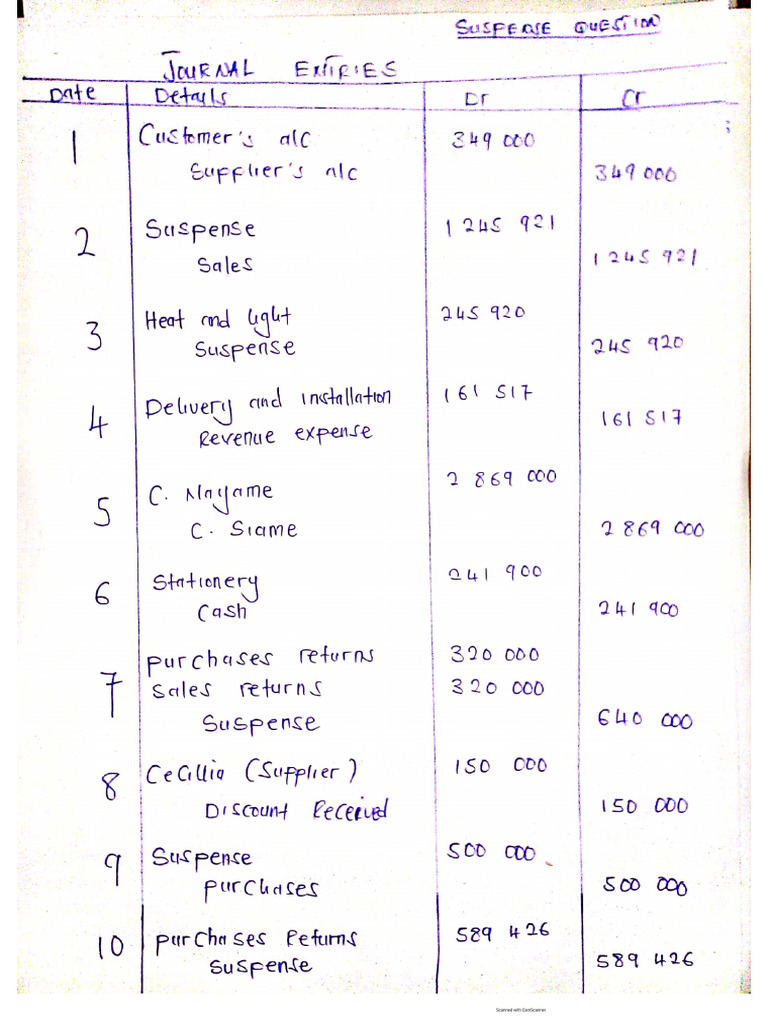 SUSPENSE QUESTION
JOURNAL ENTRIES
Date Details Dr Cr
1 Customer's a/c 349 000
Supplier's a/c 349 000
2 Suspense 1 245 921
Sales 1 245 921
3 Heat and light 245 920
Suspense 245 920
4 Delivery and installation 161 517
Revenue expense 161 517
5 C. Mayame 2 869 000
C. Siame 2 869 000
6 Stationery 241 900
Cash 241 900
7 purchases returns 320 000
Sales returns 320 000
Suspense 640 000
8 Cecillia (Supplier) 150 000
Discount Received 150 000
9 Suspense 500 000
purchases 500 000
10 purchases Returns 589 426
Suspense 589 426
Scanned with CamScanner